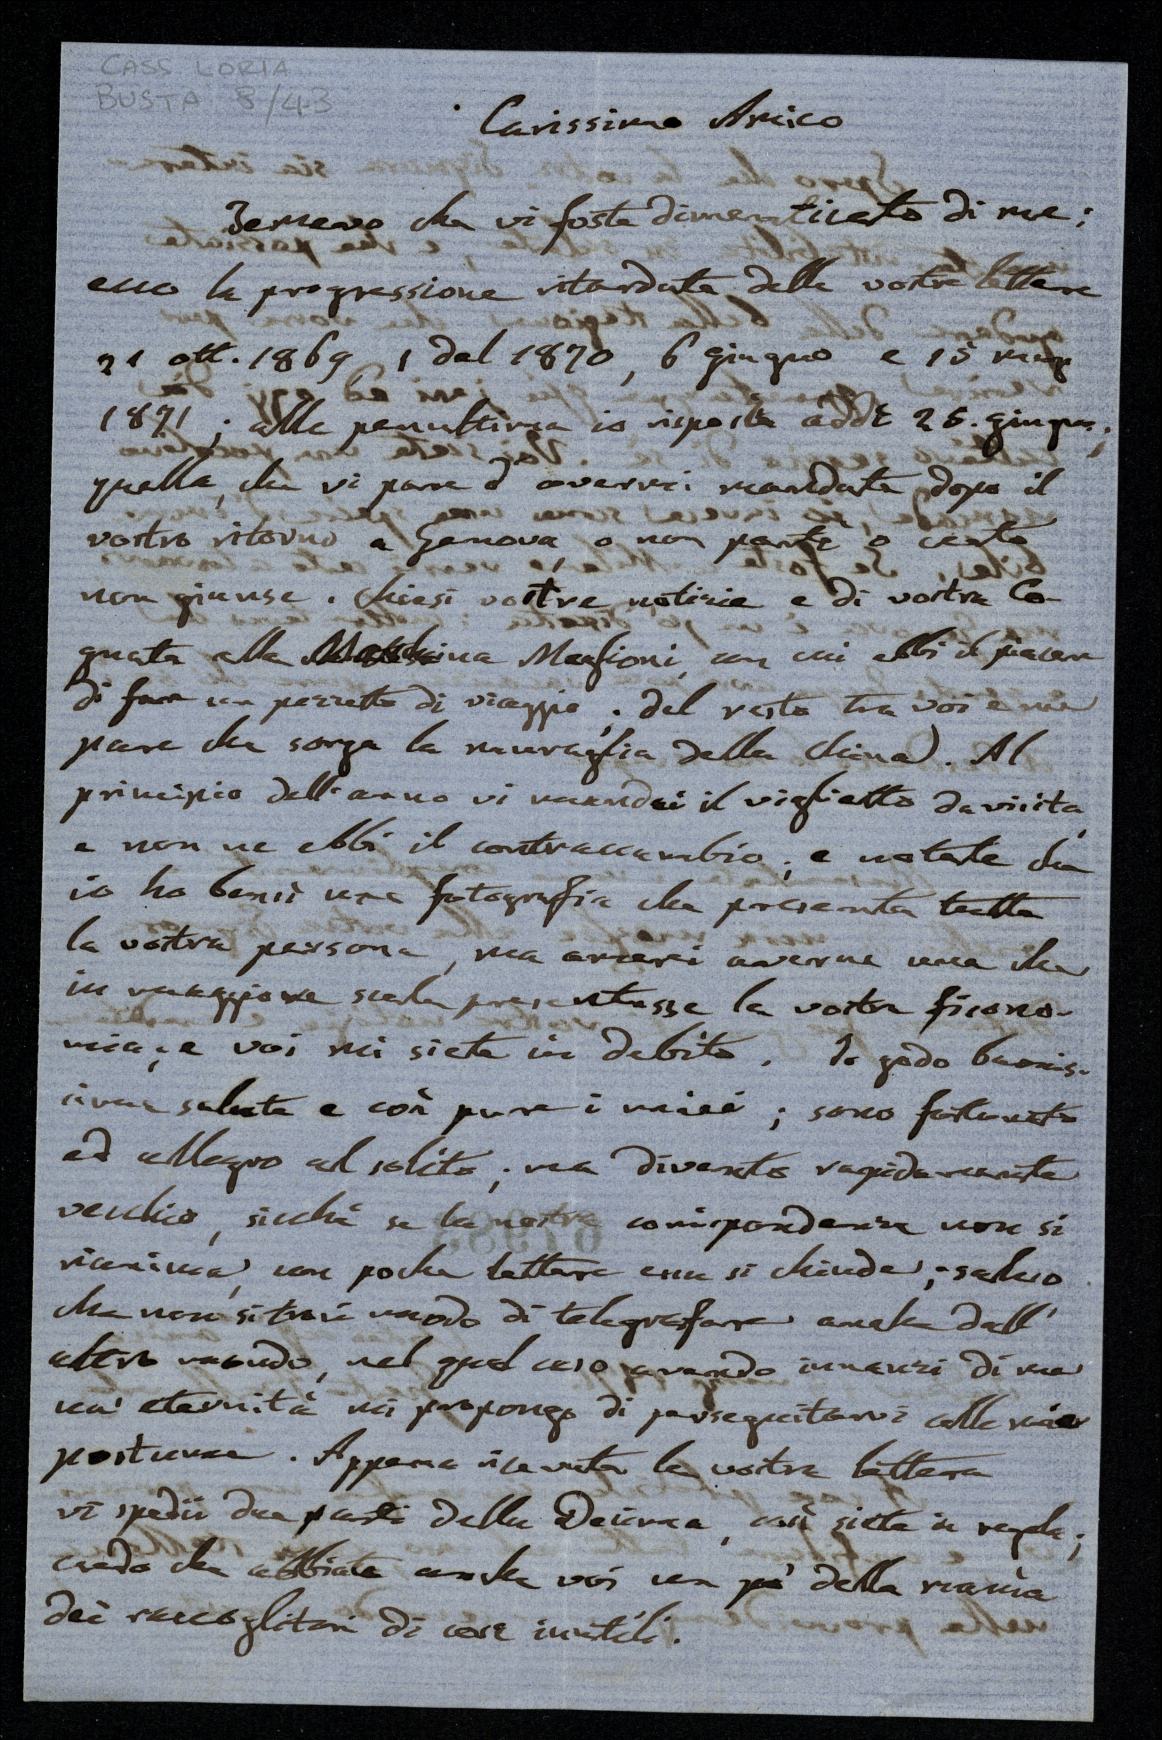 CASS LORIA
BUSTA 8/43
Carissimo Amico
Temevo che vi foste dimenticato di me;
ecco la progressione ritardata delle vostre lettere
21 ott. 1869, 1 dal 1870, 6 giugno e 15 mag
1871; alla penultima io risposi addì 25. giugno;
quella, che vi pare d'avermi mandata dopo il
vostro ritorno a Genova, o non partì o certo
non giunse. Chiesi vostre notizie e di vostra Co-
gnata alla Marchina Masioni, con cui ebbi il piacere
di fare un pezzetto di viaggio; del resto tra voi e me
pare che sorga la muraglia della China. Al
principio dell'anno vi mandai il viglietto da visita,
e non ne ebbi il contraccambio; e notate che
io ho bensì una fotografia che presenta tutta
la vostra persona, ma amerei averne una che
in maggiore scala presentasse la vostra fisono-
mia; e voi mi siete in debito. Io godo buonis-
sima salute e così pure i miei; sono fortunato
ed allegro al solito; ma divento rapidamente
vecchio, sicchè se la nostra corrispondenza non si
rianima, con poche lettere essa si chiude; salvo
che non si trovi modo di telegrafare anche dall'
altro mondo, nel qual caso avendo innanzi di me
un' eternità mi propongo di perseguitarvi colle mie
postume. Appena ricevuta la vostra lettera
vi spedii due parti della Decima, così siete in regola;
credo che abbiate anche voi un po' della mania
dei raccoglitori di cose inutili.